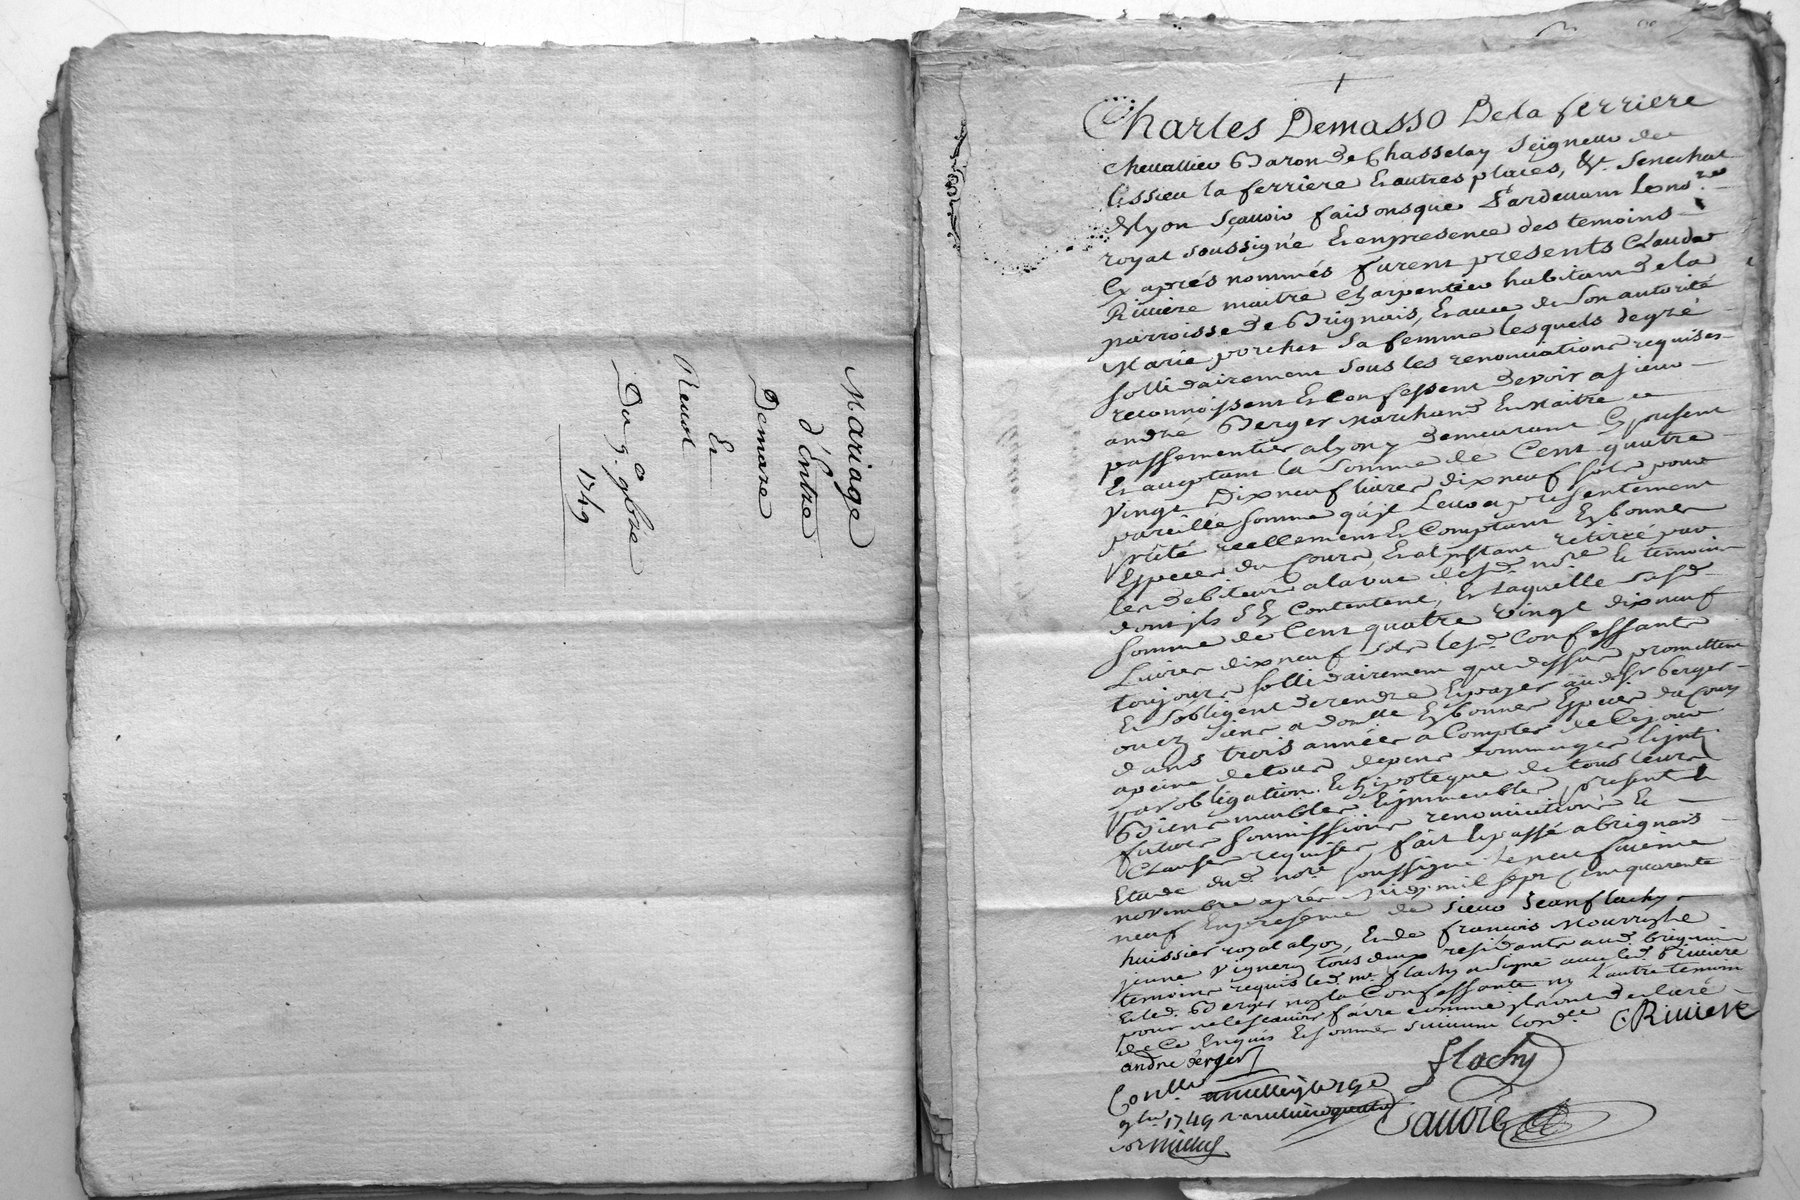 Mariage
d'Entre
Demare
Et
Revol
Du 9e 9bre
1749
Charles Demasso De la ferriere
Chevallier Baron De Chasselay Seigneur de
lissieu la ferriere Et autres places, &c. Senechal
de lyon Scavoir faisons que Pardevant Le nore
royal soussigné Et en presence des temoins
Cy aprés nommés furent presents Claude
Riviere maitre Charpentier habitant De la
parroisse De Brignais, Et avec de Son autorité
Marie porcher Sa femme lesquels de gré
sollidairement sous les renonciations requises
reconnoissent Et Confessent Devoir a sieur
andré Berger Marchand Et Maitre
passementier a lyon y demeurant Cy present
Et acceptant la Somme de Cent quatre
Vingt Dix neuf livres dix neuf sols pour
pareille somme qu'il Leur a presentement
prêté reellement Et Comptant En bonnes
Especes du Cours, Et a l'instant retirée par
les debiteurs a la vue desd. nore Et temoins
dont ils s'En Contentent, Et Laquelle susd.
somme de Cent quatre vingt dix neuf
Livres dix neuf sols lesd. Confessants
toujours sollidairement que dessus promettent
Et s'obligent De rendre Et payer aud. Sr Berger
ou ez siens a En bonnes Especes du Cours
dans trois années a Compter de Ce jour
a peine de tous depens dommages Et intts
par obligation Et hipoteque de tous leurs
Biens meubles Et immeubles presents Et
futurs Soumissions renonciations Et
Clauses requises, fait Et passé a brignais
Etude dud. nore soussigné le neufvieme
novembre aprés Midy mil sept Cent quarente
neuf En presence de Sieur Jean flachy
huissier royal a lyon, Et de francois
jeune Vigneron tous deux residants aud. brignais
temoins requis led. me flachy a signé avec led. Riviere
Et led. Berger non la Confessante ny L'autre temoin
pour ne le scavoir faire comme ils ont Declaré
de Ce Enquis Et sommés suivant l'ordce
C Riviere
andre berger
flachy
Conllé
9bre 1749
Savoie